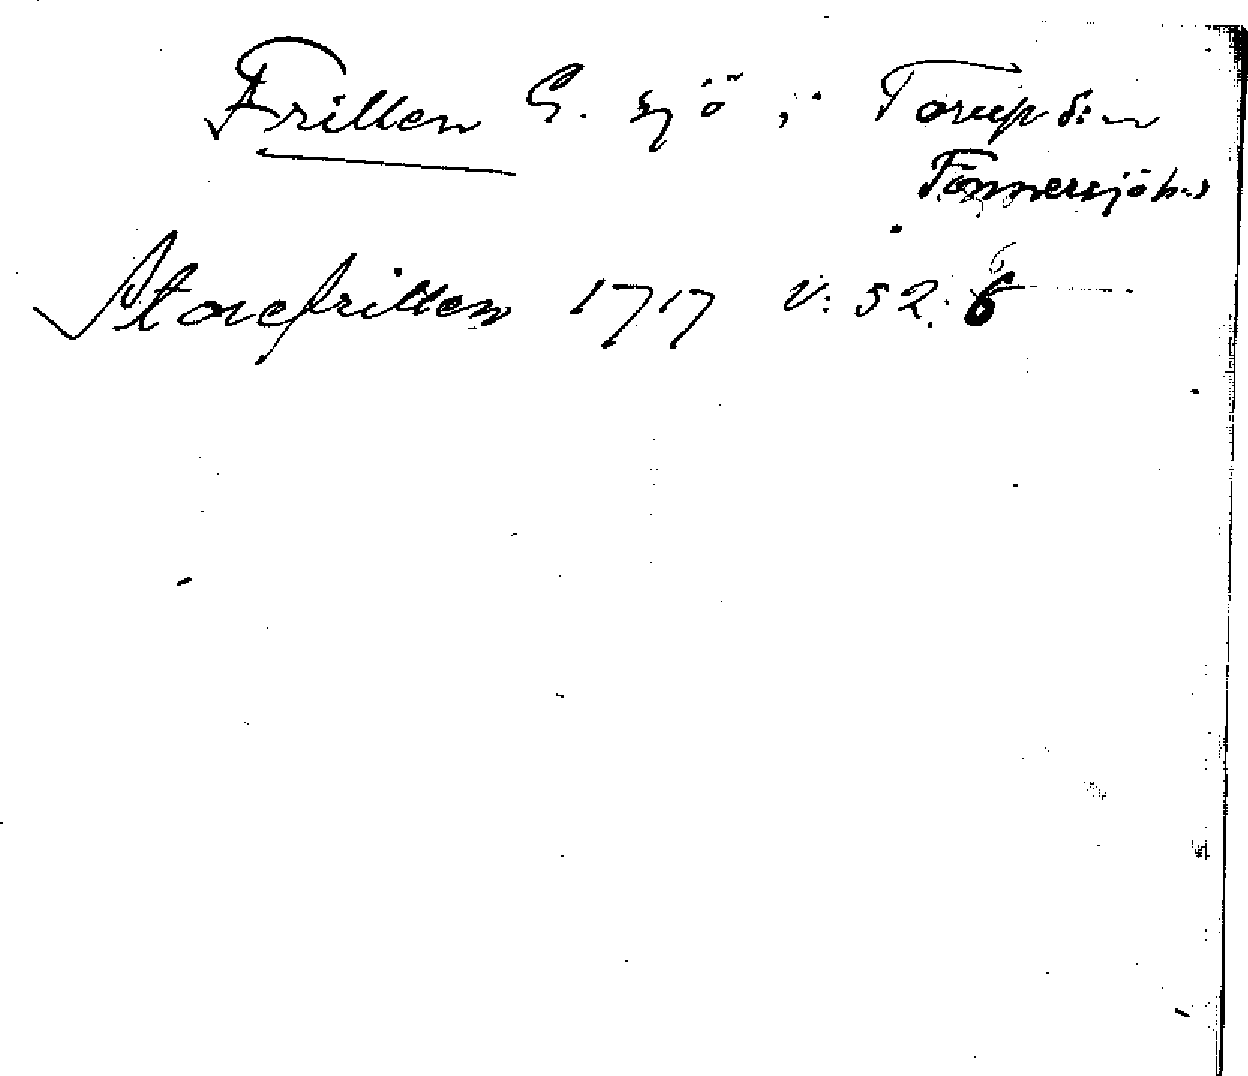 Frillen G. sjö i Torup s:n
Tönnersjö h:d
Storefrillen 1717 V: 52: 6